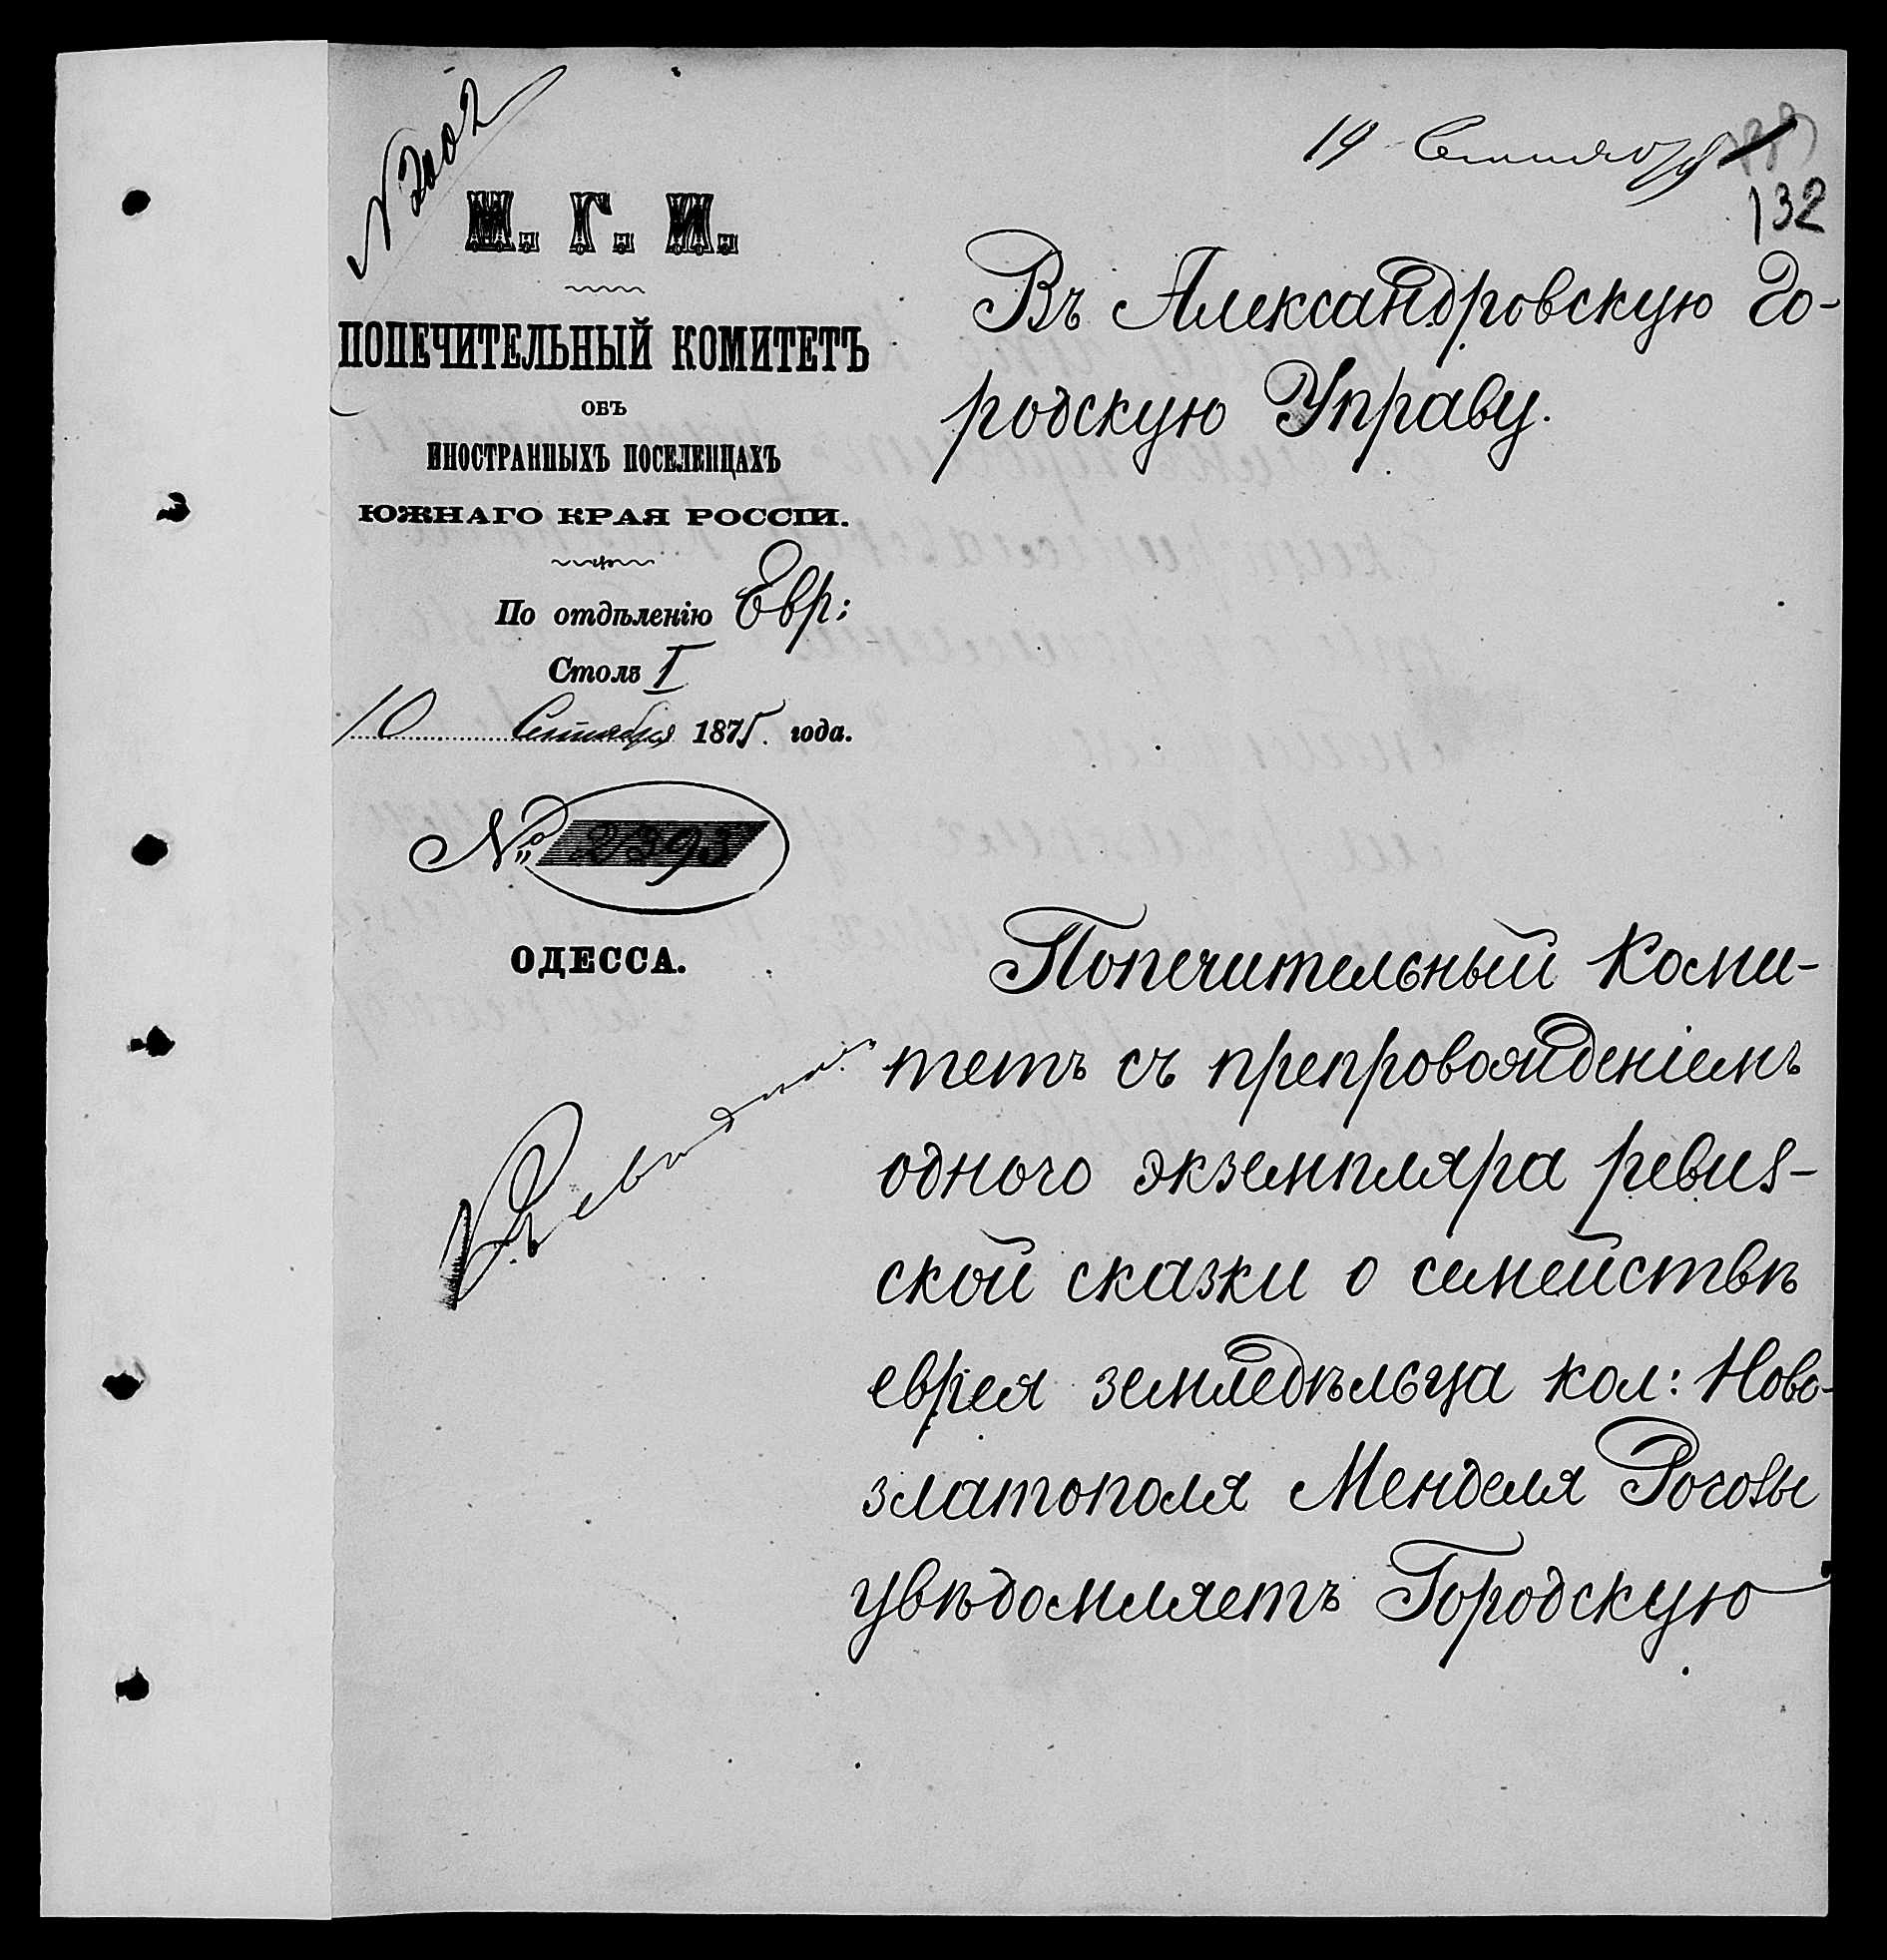 N 3002
19 Сентября
132
М. Г. И.
ПОПЕЧИТЕЛЬНЫЙ КОМИТЕТЪ
ОБЪ
ИНОСТРАННЫХЪ ПОСЕЛЕНЦАХЪ
ЮЖНАГО КРАЯ РОССІИ.
По отдѣленію Евр:
Столъ I
10 Сентября 1875. года.
№ 2393
ОДЕССА.
Въ Александровскую Го-
родскую Управу.
Попечительный Коми-
тетъ съ препровожденіемъ
одного экземпляра ревиз-
ской сказки о семействѣ
еврея земледѣльца кол: Ново-
златополя Менделя Рогозы
увѣдомляетъ Городскую